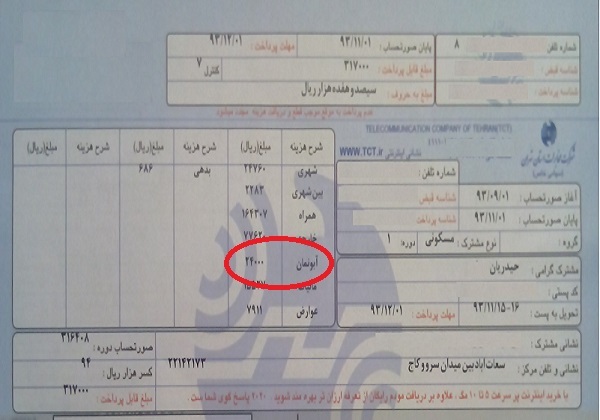 شماره تلفن : ۸
پایان صورتحساب : ۹۳/۱۱/۰۱ مهلت پرداخت : ۹۳/۱۲/۰۱
شناسه قبض :
مبلغ قابل پرداخت : ۳۱۷۰۰۰ کنترل ۷
شناسه پرداخت :
مبلغ به حروف : سیصدو هفده هزار ریال
عدم پرداخت به موقع موجب قطع و دریافت هزینه مجدد میشود
TELECOMMUNICATION COMPANY OF TEHRAN(TCT)
شرکت مخابرات استان تهران
(سهامی خاص)
نشانی اینترنتی WWW.TCT.ir
شماره تلفن :
آغاز صورتحساب : ۹۳/۰۹/۰۱ شناسه قبض
پایان صورتحساب : ۹۳/۱۱/۰۱ شناسه پرداخت
گروه : نوع مشترک : مسکونی دوره : ۱
مشترک گرامی : حیدریان
کد پستی :
تحویل به پست : ۹۳/۱۱/۱۵-۱۶ مهلت پرداخت : ۹۳/۱۲/۰۱
شرح هزینه مبلغ(ریال) شرح هزینه مبلغ(ریال) شرح هزینه مبلغ(ریال)
شهری ۲۴۷۶۰ بدهی ۶۸۶
بین‌شهری ۲۴۸۳
همراه ۱۶۴۳۰۷
آبونمان ۲۴۰۰۰
مالیات
عوارض ۷۹۱۱
نشانی مشترک :
صورتحساب دوره : ۳۱۶۴۰۸
نشانی و تلفن مرکز : سعادت آباد بین میدان سرو و کاج ۲۲۱۴۲۱۷۳
کسر هزار ریال : ۹۴
با خرید اینترنت پر سرعت ۵ تا ۱۰ مگ، علاوه بر دریافت مودم رایگان از تعرفه ارزان تر بهره مند شوید . ۲۰۲۰ پاسخ گوی شما ست
مبلغ قابل پرداخت : ۳۱۷۰۰۰